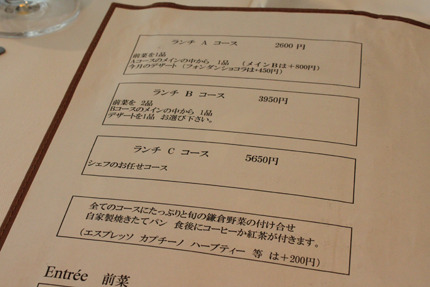 ランチ A コース 2600円
前菜を1品
Aコースのメインの中から 1品 (メインBは＋800円)
今月のデザート (フォンダンショコラは+450円)
ランチ B コース 3950円
前菜を 2品
Bコースのメインの中から 1品
デザートを1品 お選び下さい。
ランチ C コース 5650円
シェフのお任せコース
全てのコースにたっぷりと旬の鎌倉野菜の付け合せ
自家製焼きたてパン 食後にコーヒーか紅茶が付きます。
(エスプレッソ カプチーノ ハーブティー 等 は＋200円)
Entrée 前菜